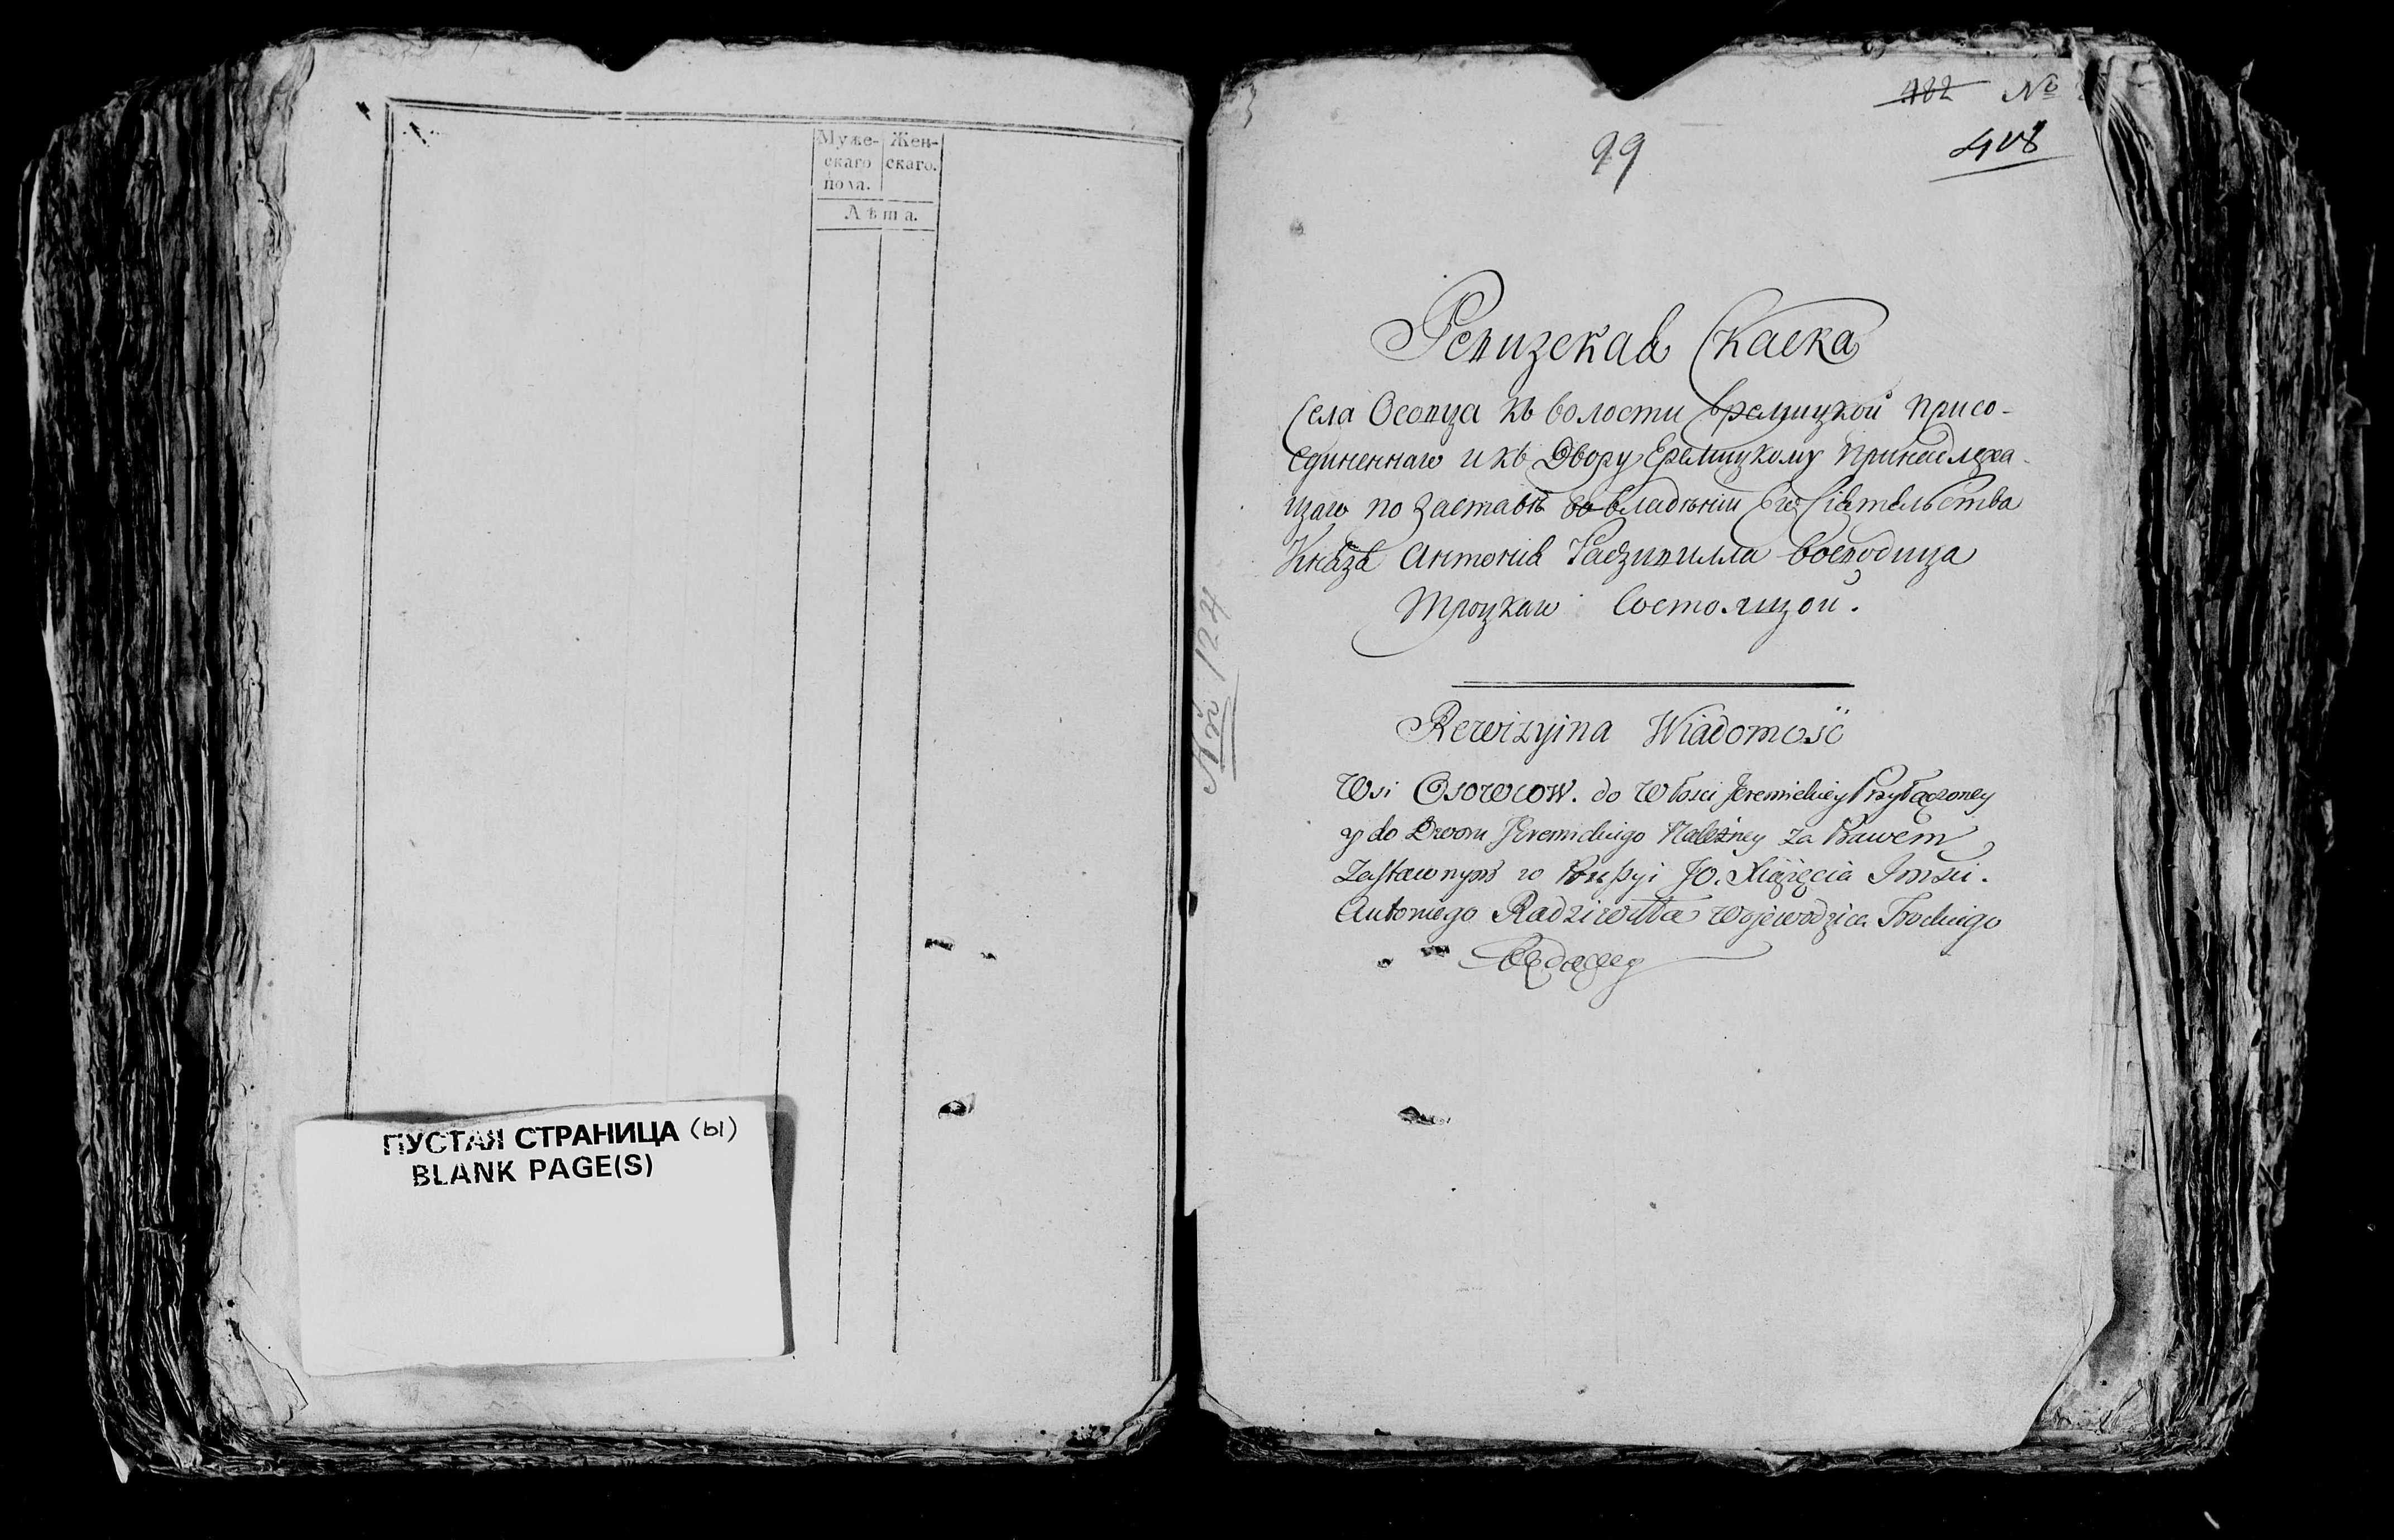 Муже-
скаго
пола.
Жен-
скаго.
Лѣта.
ПУСТАЯ СТРАНИЦА (ы)
BLANK PAGE(S)
482 №
99
408
Ревизская Скаска
Села Осовца къ волости Еремицкой присо-
единеннаго и къ Двору Еремицкому принадлежа-
щаго по заставѣ во владѣнiи Его Сiятельства
Князя Антонiя Радзивилла воеводица
Троцкаго состоящой.
Rewizyina Wiadomość
Wsi Osowcow. do Włosci Jeremickiey Przyłączoney
y do Dworu Jeremickiego Należney za Prawem
Zastawnym w JO. Xiążęcia Jmsci.
Antoniego Radziwiłła Wojewodzica Trockiego
Będącey
124